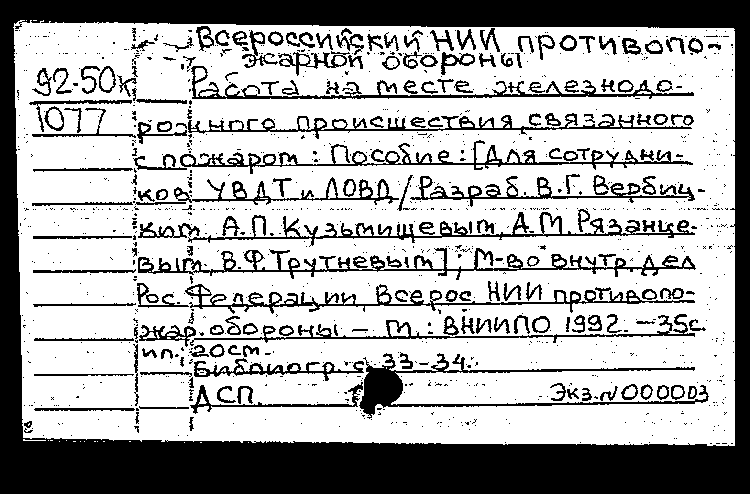 Всероссийский НИИ противопо-
жарной обороны
92-50к Работа на месте железнодо-
1077 рожного происшествия, связанного
с пожаром : Пособие : [Для сотрудни-
ков УВДТ и ЛОВД / Разраб. В.Г. Вербиц-
ким, А.П. Кузьмищевым, А.М. Рязанце-
вым, В.Ф. Трутневым] ; М-во внутр. дел
Рос. Федерации, Всерос. НИИ противопо-
жар. обороны. – М. : ВНИИПО, 1992. – 35с.
ил.; 20см.
Библиогр.: с. 33-34.
ДСП. Экз. N 000003